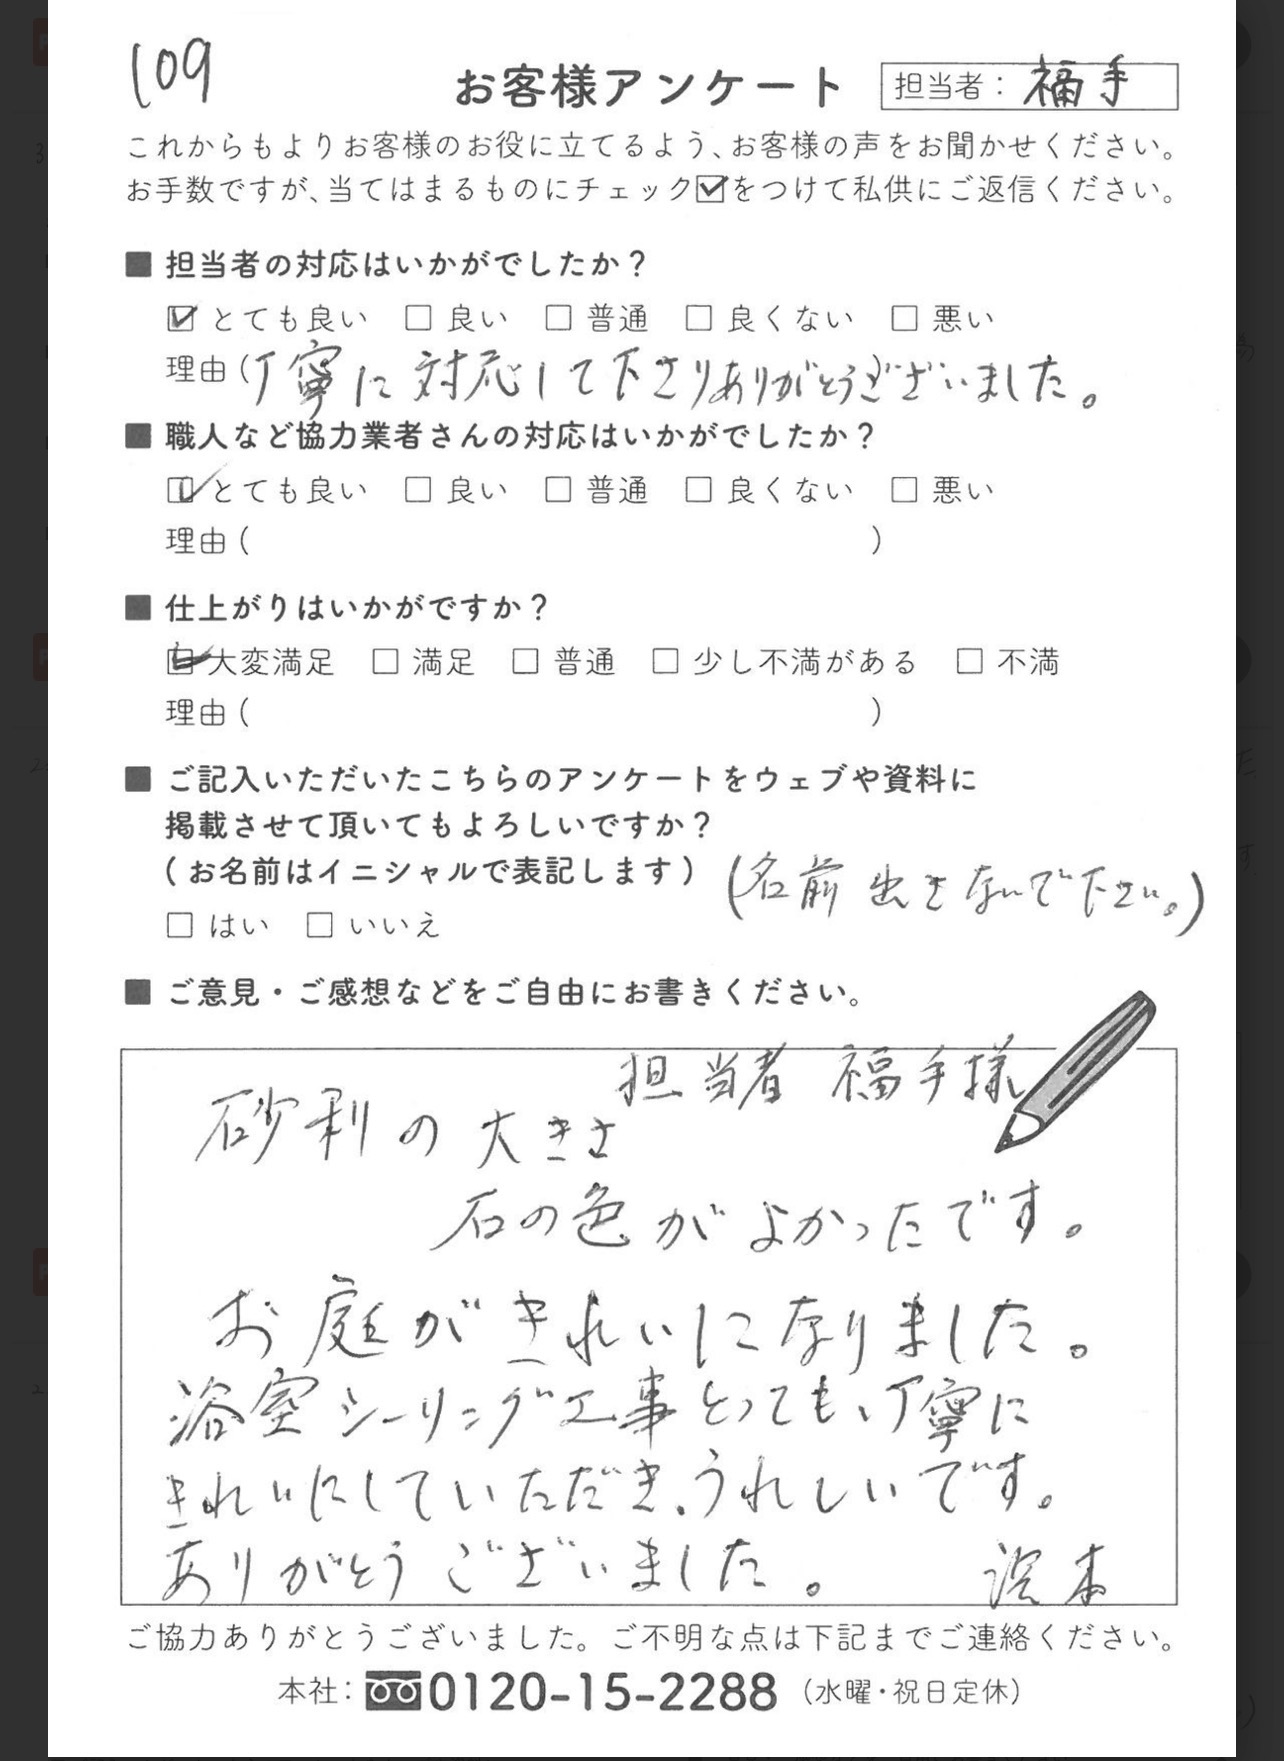 109
お客様アンケート 担当者：福手
これからもよりお客様のお役に立てるよう、お客様の声をお聞かせください。
お手数ですが、当てはまるものにチェック☑をつけて私供にご返信ください。
■ 担当者の対応はいかがでしたか？
☑ とても良い □ 良い □ 普通 □ 良くない □ 悪い
理由 (丁寧に対応して下さりありがとうございました。
■ 職人など協力業者さんの対応はいかがでしたか？
☑ とても良い □ 良い □ 普通 □ 良くない □ 悪い
理由 ( )
■ 仕上がりはいかがですか？
☑ 大変満足 □ 満足 □ 普通 □ 少し不満がある □ 不満
理由 ( )
■ ご記入いただいたこちらのアンケートをウェブや資料に
掲載させて頂いてもよろしいですか？
(お名前はイニシャルで表記します) (名前出さないで下さい。)
□ はい □ いいえ
■ ご意見・ご感想などをご自由にお書きください。
担当者 福手様
砂利の大きさ
石の色がよかったです。
お庭がきれいになりました。
浴室シーリング工事とっても、丁寧に
きれいにしていただき、うれしいです。
ありがとうございました。
ご協力ありがとうございました。ご不明な点は下記までご連絡ください。
本社：0120-15-2288 (水曜・祝日定休)